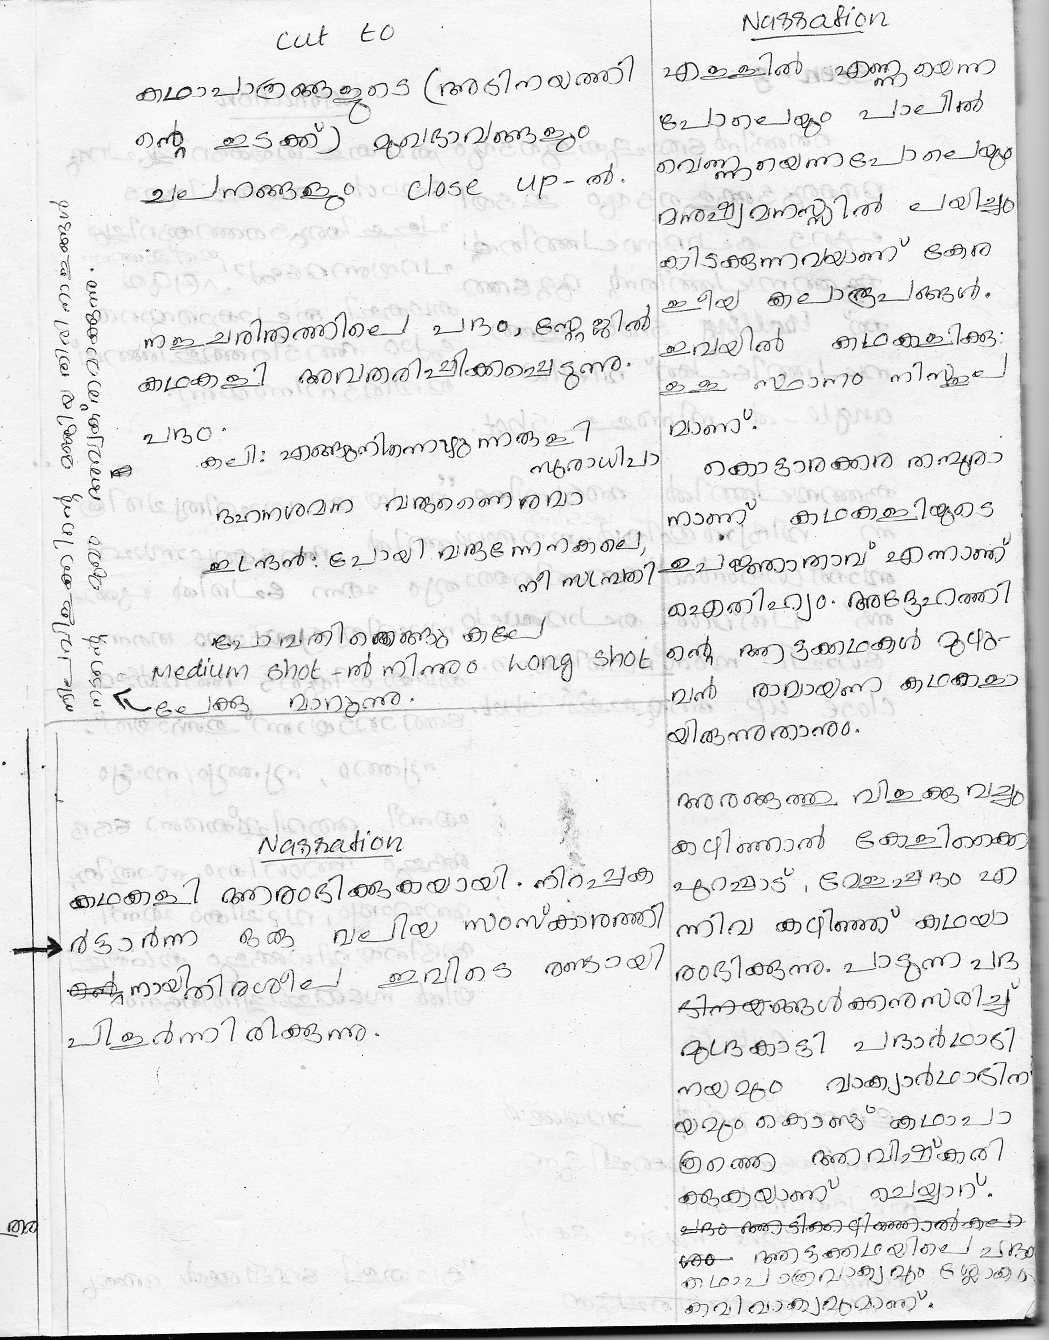 Cut to
കഥാപാത്രങ്ങളുടെ (അഭിനയത്തി
ന്റെ ഇടക്ക്) മുഖഭാവങ്ങളും
ചലനങ്ങളും close up-ൽ.
നളചരിതത്തിലെ പദം, സ്റ്റേജിൽ
കഥകളി അവതരിപ്പിക്കപ്പെടുന്നു.
പദം.
കലി: എങ്ങുനിന്നെഴുന്നരുളി
സുരാധിപാ
ദഹനശമന വരുണൈരമാ
ഇന്ദ്രൻ: പോയി വരുന്നേനകലെ,
നീ സമ്പ്രതി
പോവതിന്നെങ്ങു കലേ
Medium shot-ൽ നിന്നും Long shot
ലേക്കു മാറുന്നു.
Narration
കഥകളി ആരംഭിക്കുകയായി. നിറപ്പക
ർട്ടാർന്ന ഒരു വലിയ സംസ്കാരത്തി
നായി തിരശീല ഇവിടെ രണ്ടായി
പിളർന്നിരിക്കുന്നു.
Narration
എള്ളിൽ എണ്ണയെന്ന
പോലെയും പാലിൽ
വെണ്ണയെന്നപോലെയും
മനുഷ്യമനസ്സിൽ ലയിച്ചു
കിടക്കുന്നവയാണ് കേര
ളീയ കലാരൂപങ്ങൾ.
ഇവയിൽ കഥകളിക്കു
ള്ള സ്ഥാനം നിസ്തുല
മാണ്.
കൊട്ടാരക്കര തമ്പുരാ
നാണ് കഥകളിയുടെ
ഉപജ്ഞാതാവ് എന്നാണ്
ഐതിഹ്യം. അദ്ദേഹത്തി
ന്റെ ആട്ടക്കഥകൾ മുഴു-
വൻ രാമായണ കഥകളാ
യിരുന്നുതാനും.
അരങ്ങത്തു വിളക്കു വച്ചു
കഴിഞ്ഞാൽ കേളിക്കൈ
പുറപ്പാട്, മേളപ്പദം എ
ന്നിവ കഴിഞ്ഞ് കഥയാ
രംഭിക്കുന്നു. പാടുന്ന പദ
ങ്ങൾക്കനുസരിച്ച്
മുദ്രകാട്ടി പദാർഥാഭി
നയവും വാക്യാർഥാഭിന
യവും കൊണ്ട് കഥാപാ
ത്രത്തെ ആവിഷ്കരി
ക്കുകയാണ് ചെയ്യുന്നത്.
പദം ആടിക്കഴിഞ്ഞാൽ കലാ
ശം ആട്ടക്കഥയിലെ പദം
കഥാപാത്രവാക്യവും ശ്ലോകം
കവിവാക്യവുമാണ്.